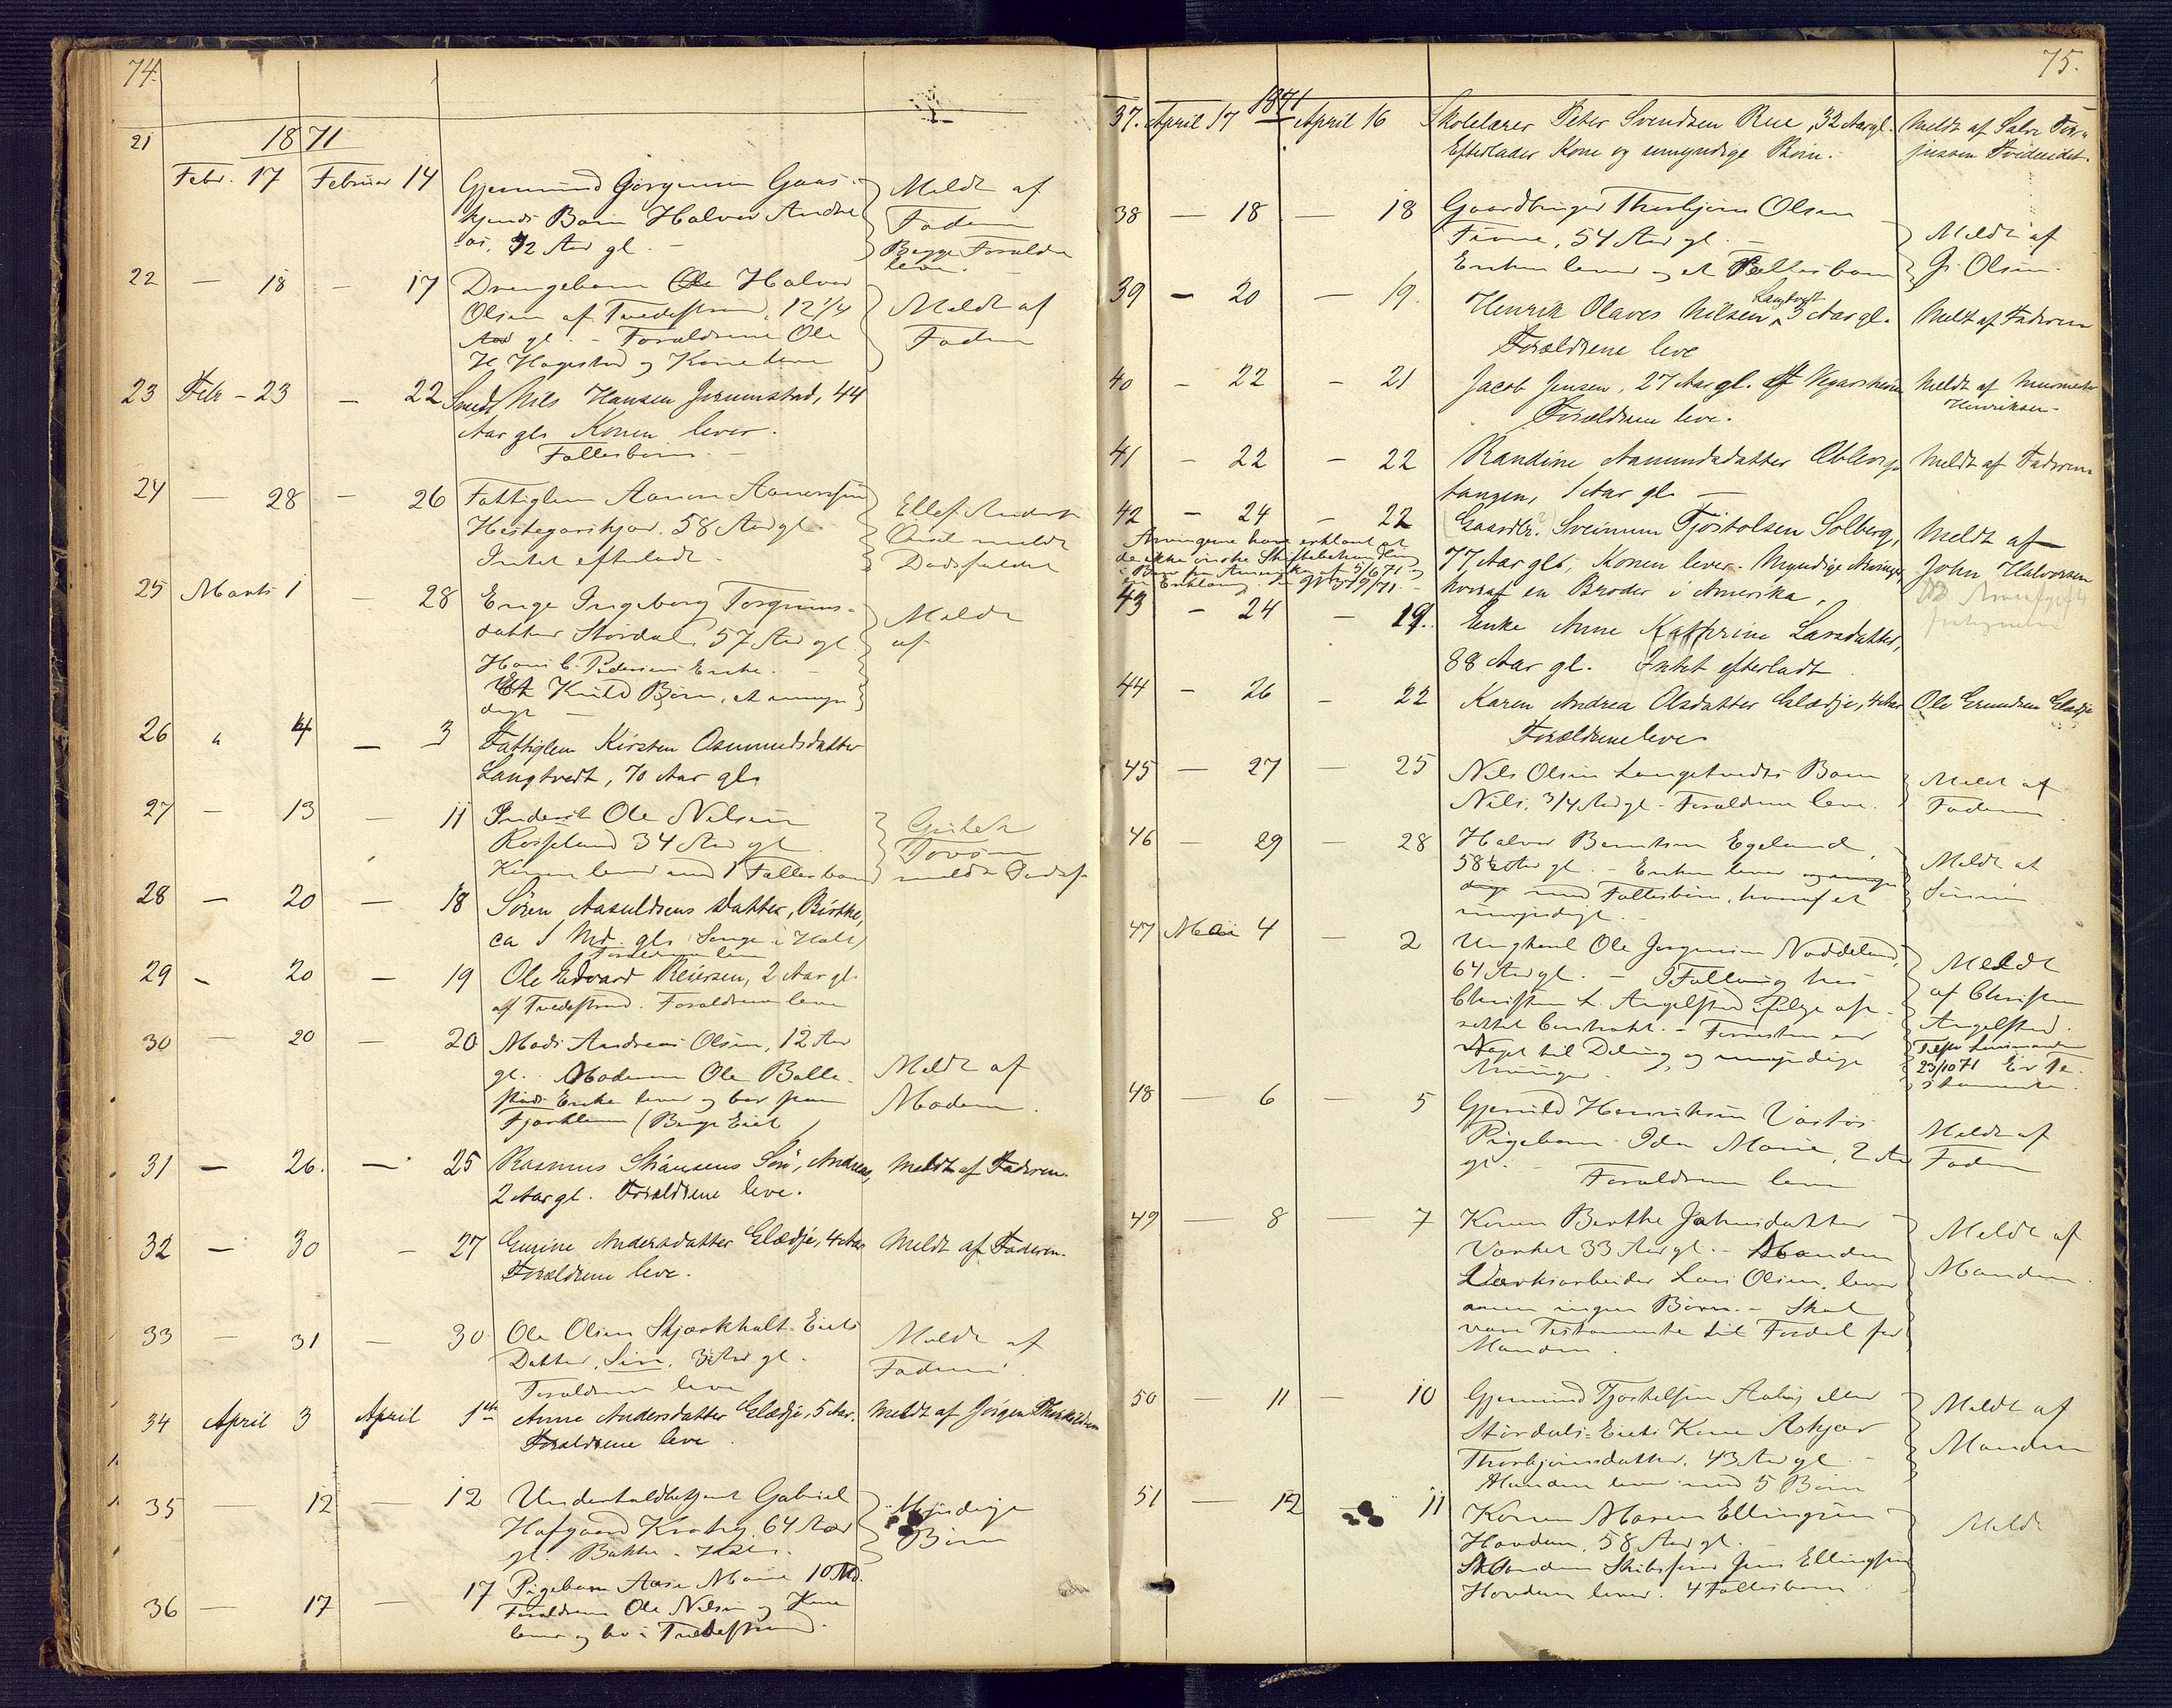 74.
21
1871
Febr. 17 Februar 14 Gjermund Jörgensen Gaas- Meldt af
kjends Barn Halvor Andre Faderen
as, 1/2 Aar gl. – Begge Forældre
leve.
22 — 18 — 17 Drengebarn Halvor
Olsen af Tvedestrand, 12 1/4 Meldt af
Aar gl. – Forældrene Ole Faderen
H. Hagestad og Kone leve
23 Febr – 23 — 22 Smed Nils Hansen Grumstad, 44
Aar gl. Konen lever.
Fællesbørn. –
24 — 28 — 26 Fattiglem Aanon Aanonsen Ellef Anders
Hestegarskjær. 58 Aar gl. meldt
Intet efterladt – Dødsfaldet
25 Marts 1 — 28 Enge Ingeborg Torgrims- Meldt
datter Stordal, 57 Aar gl af
Hans C. Pedersens Enke. –
Kuld Børn, et umyn
digt
26 " 4 — 3 Fattiglem Kirsten Osmundsdatter
Langtvedt, 70 Aar gl.
27 — 13 — 11 Inderst Ole Nilsen
Roiseland 34 Aar gl
Konen lever med 1 Fællesbarn meldt Dødsf.
28 — 20 — 18 Sören Aasuldsens Datter, Birthe,
ca 1 Md. gl. (Songe i Holt)
Forældrene leve
29 – 20 — 19 Ole Edvard Reiersen, 2 Aar gl.
af Tvedestrand. Forældrene leve
30 — 20 — 20 Mads Andreas Olsen, 12 Aar
gl. Moderen Ole Balle- Meldt af
stads Enke lever og bor paa Moderen.
Fjærkleven (Berge Eiet)
31 — 26. — 25 Rasmus Stiansens Sön, Andreas, Meldt af Faderen.
2 Aar gl. Forældrene leve.
32 — 30 – 27 Gurine Andersdatter Glædje, 4 Aar Meldt af Faderen.
Forældrene leve.
33 — 31 — 30 Ole Olsen Skjærkholt-Eiets Meldt af
Datter, Sine, 3 Aar gl. Faderen.
Forældrene leve
34 April 3 April 1ste Anne Andersdatter Glædje, 5 Aar. Meldt af Jørgen Thorkildsen
Forældrene leve.
35 — 12 — 12 Underholdbetjent Gabriel Myndige
Hafgaard Krabøy. 64 Aar Børn
gl. Bakke – Holt.
36 — 17 — 17 Pigebarn Aase Marie 10 Md.
Forældrene Ole Nilsen og Kone
lever og bo i Tvedestrand.
75.
1871
37. April 17 — April 16 Skolelærer Peter Svendsen Rue, 32 Aar gl. Meldt af Salve Ter-
Efterlader Kone og umyndige Børn. jussen Tvedeeidet.
38 — 18 — 18 Gaardbruger Thorbjørn Olsen
54 Aar gl. – Meldt af
Enken lever og et Fællesbarn G. Olsen.
39 – 20 — 19. Henrik Olaves Nilsen Langtvedt, 3 Aar gl. Meldt af Faderen
Forældrene leve
40 – 22 – 21 Jacob Jensen, 27 Aar gl. af Vegarsheien Meldt af Murmester
Forældrene leve. Henriksen –
41 – 22 – 22 Randine Aanundsdatter Ebleviga Meldt af Faderen
tangen, 1 Aar gl. —
42 – 24 – 22 Gaardbr. Sveinum Tjøstolsen Solberg, Meldt af
Arvingerne have erklæret at 77 Aar gl., Konen lever. Myndige Arvinger, John Halvorsen
de ikke ønske Skiftebehandling hvoraf en Broder i Amerika.
43 – 24 – 19. Enke Anne Kathrine Larsdatter,
88 Aar gl. Intet efterladt
44 – 26 – 22 Karen Andrea Olsdatter Glædje, 4 Aar Ole Grundsen Glædje
Forældrene leve
45 — 27 — 25 Nils Olsen Langetvedts Barn Meldt af
Nils, 3/4 Aar gl. – Forældrene leve. Faderen.
46 — 29 — 28 Halvor Berntsen Egeland, Meldt af
58 1/2 Aar gl. – Enken lever Sønnen
med Fællesbørn, hvoraf et
umyndigt. –
47 Mai 4 — 2 Ungkarl Ole Jørgensen Noddeland, Meldt
64 Aar gl. – I Follaug hos af Christen
Christen L. Angelstad ifølge op- Angelstad.
rettet Contrakt. – Forresten er
Noget til Deling, og umyndige 23/10 71
Arvinger.
48 — 6 — 5 Gjeruld Henriksen Vastøs Meldt af
Pigebarn Ida Marie, 2 Aar Faderen
gl. – Forældrene leve
49 — 8 — 7 Konen Berthe Johnsdatter Meldt af
Værket 33 Aar gl. – Manden Manden.
Værksarbeider Lars Olsen, lever
men ingen Børn. – Skal
være Testamente til Fordel for
Manden.
50 — 11 — 10 Gjermund Tjøstelsen Aabøj eller Meldt af
Stordals-Eiets Kone Askjær Manden
Thorbjørnsdatter, 43 Aar gl –
Manden lever med 5 Børn
51 — 12 — 11 Konen Maren Ellingsen Meldt
Hovden, 58 Aar gl. –
Manden Skibsfører Jens Ellingsen
Hovden lever. 4 Fællesbørn